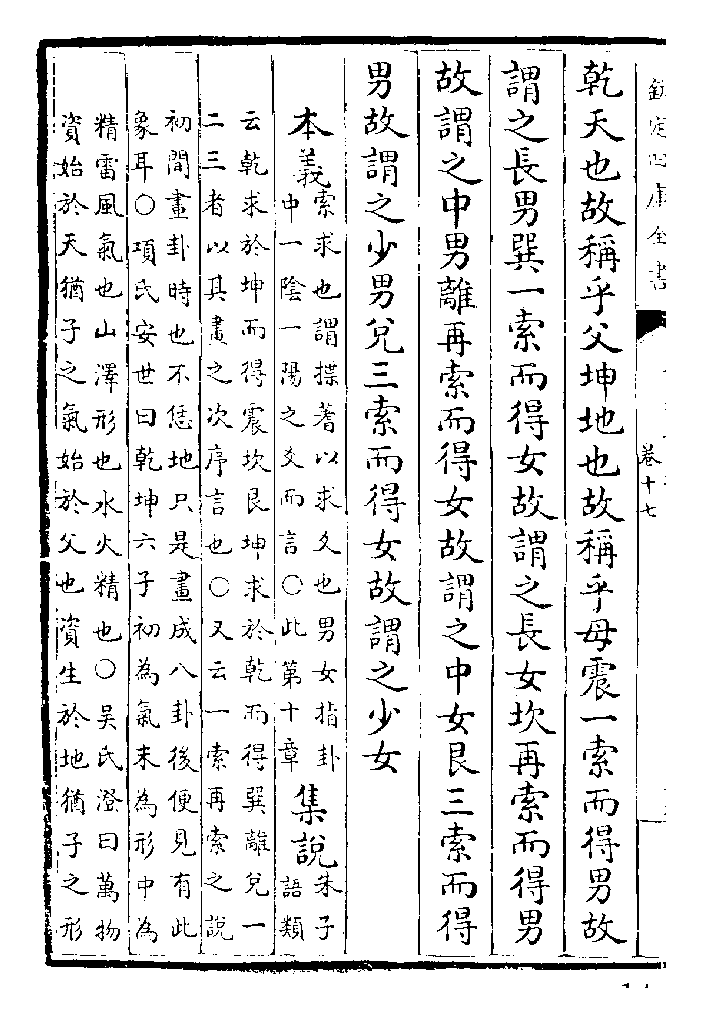 欽定四庫全書
卷十七
乾天也故稱乎父坤地也故稱乎母震一索而得男故
謂之長男巽一索而得女故謂之長女坎再索而得男
故謂之中男離再索而得女故謂之中女艮三索而得
男故謂之少男兌三索而得女故謂之少女
本義索求也謂揲蓍以求爻也男女指卦
中一陰一陽之爻而言○此第十章集說朱子
語類
云乾求於坤而得震坎艮坤求於乾而得巽離兌一
二三者以其畫之次序言也○又云一索再索之說
初間畫卦時也不恁地只是畫成八卦後便見有此
象耳○項氏安世曰乾坤六子初為氣末為形中為
精雷風氣也山澤形也水火精也○吳氏澄曰萬物
資始於天猶子之氣始於父也資生於地猶子之形